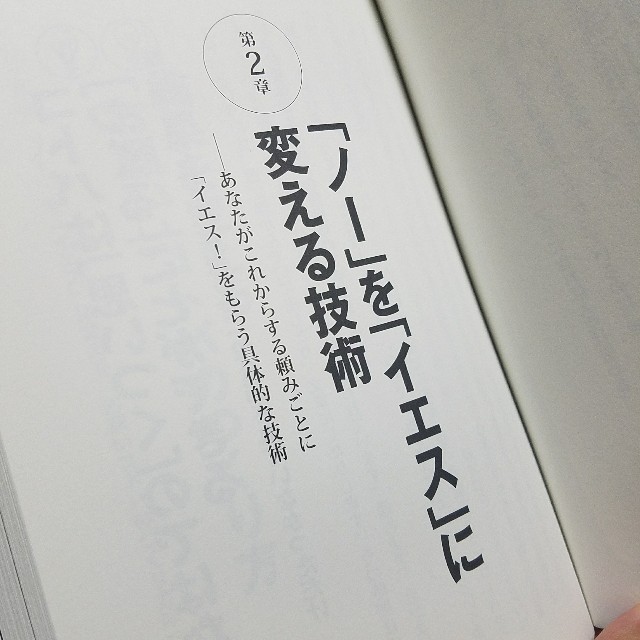 第2章
「ノー」を「イエス」に
変える技術
――あなたがこれからする頼みごとに
「イエス！」をもらう具体的な技術